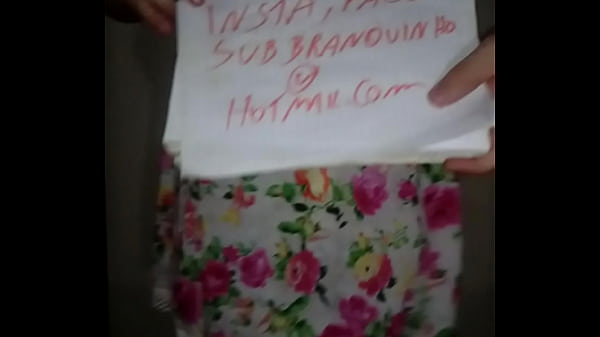 INSTA,
SUBBRANQUINHO
@
HOTMAIL.COM